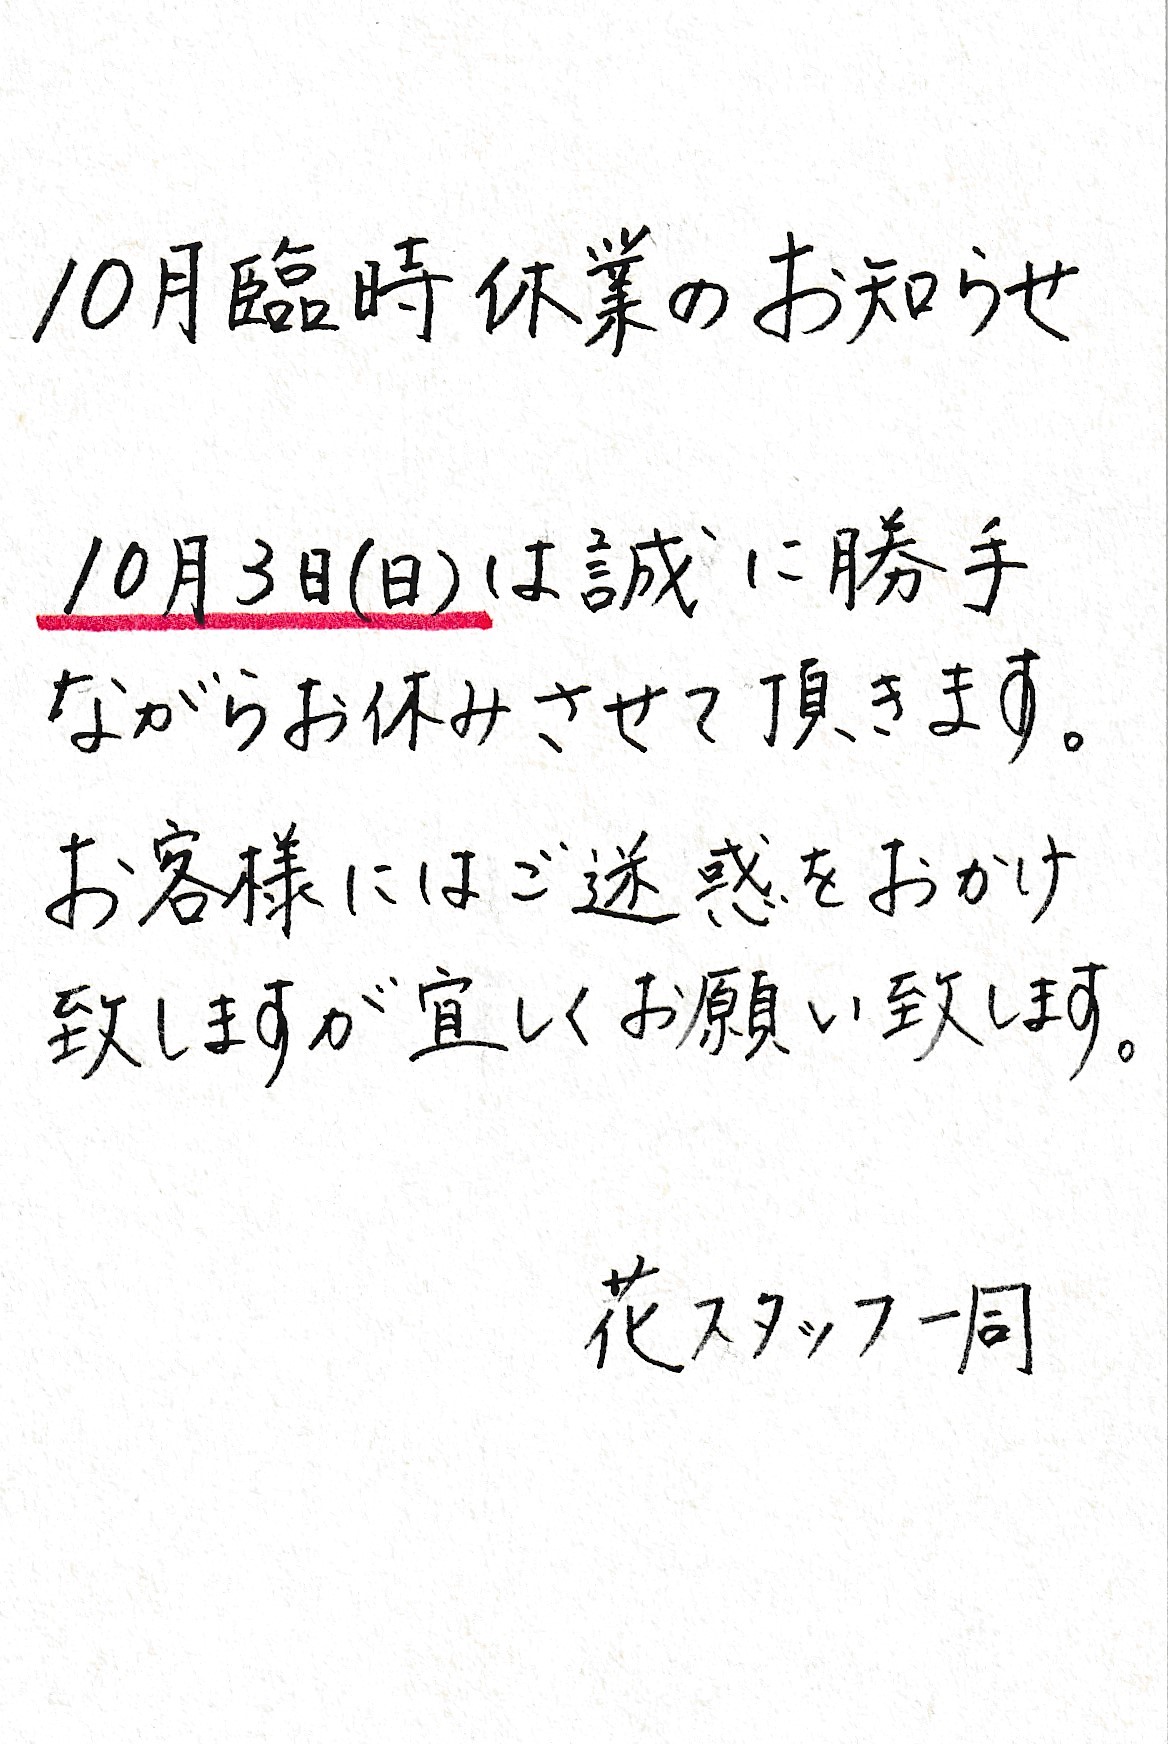 10月臨時休業のお知らせ
10月3日(日)は誠に勝手
ながらお休みさせて頂きます。
お客様にはご迷惑をおかけ
致しますが宜しくお願い致します。
花スタッフ一同